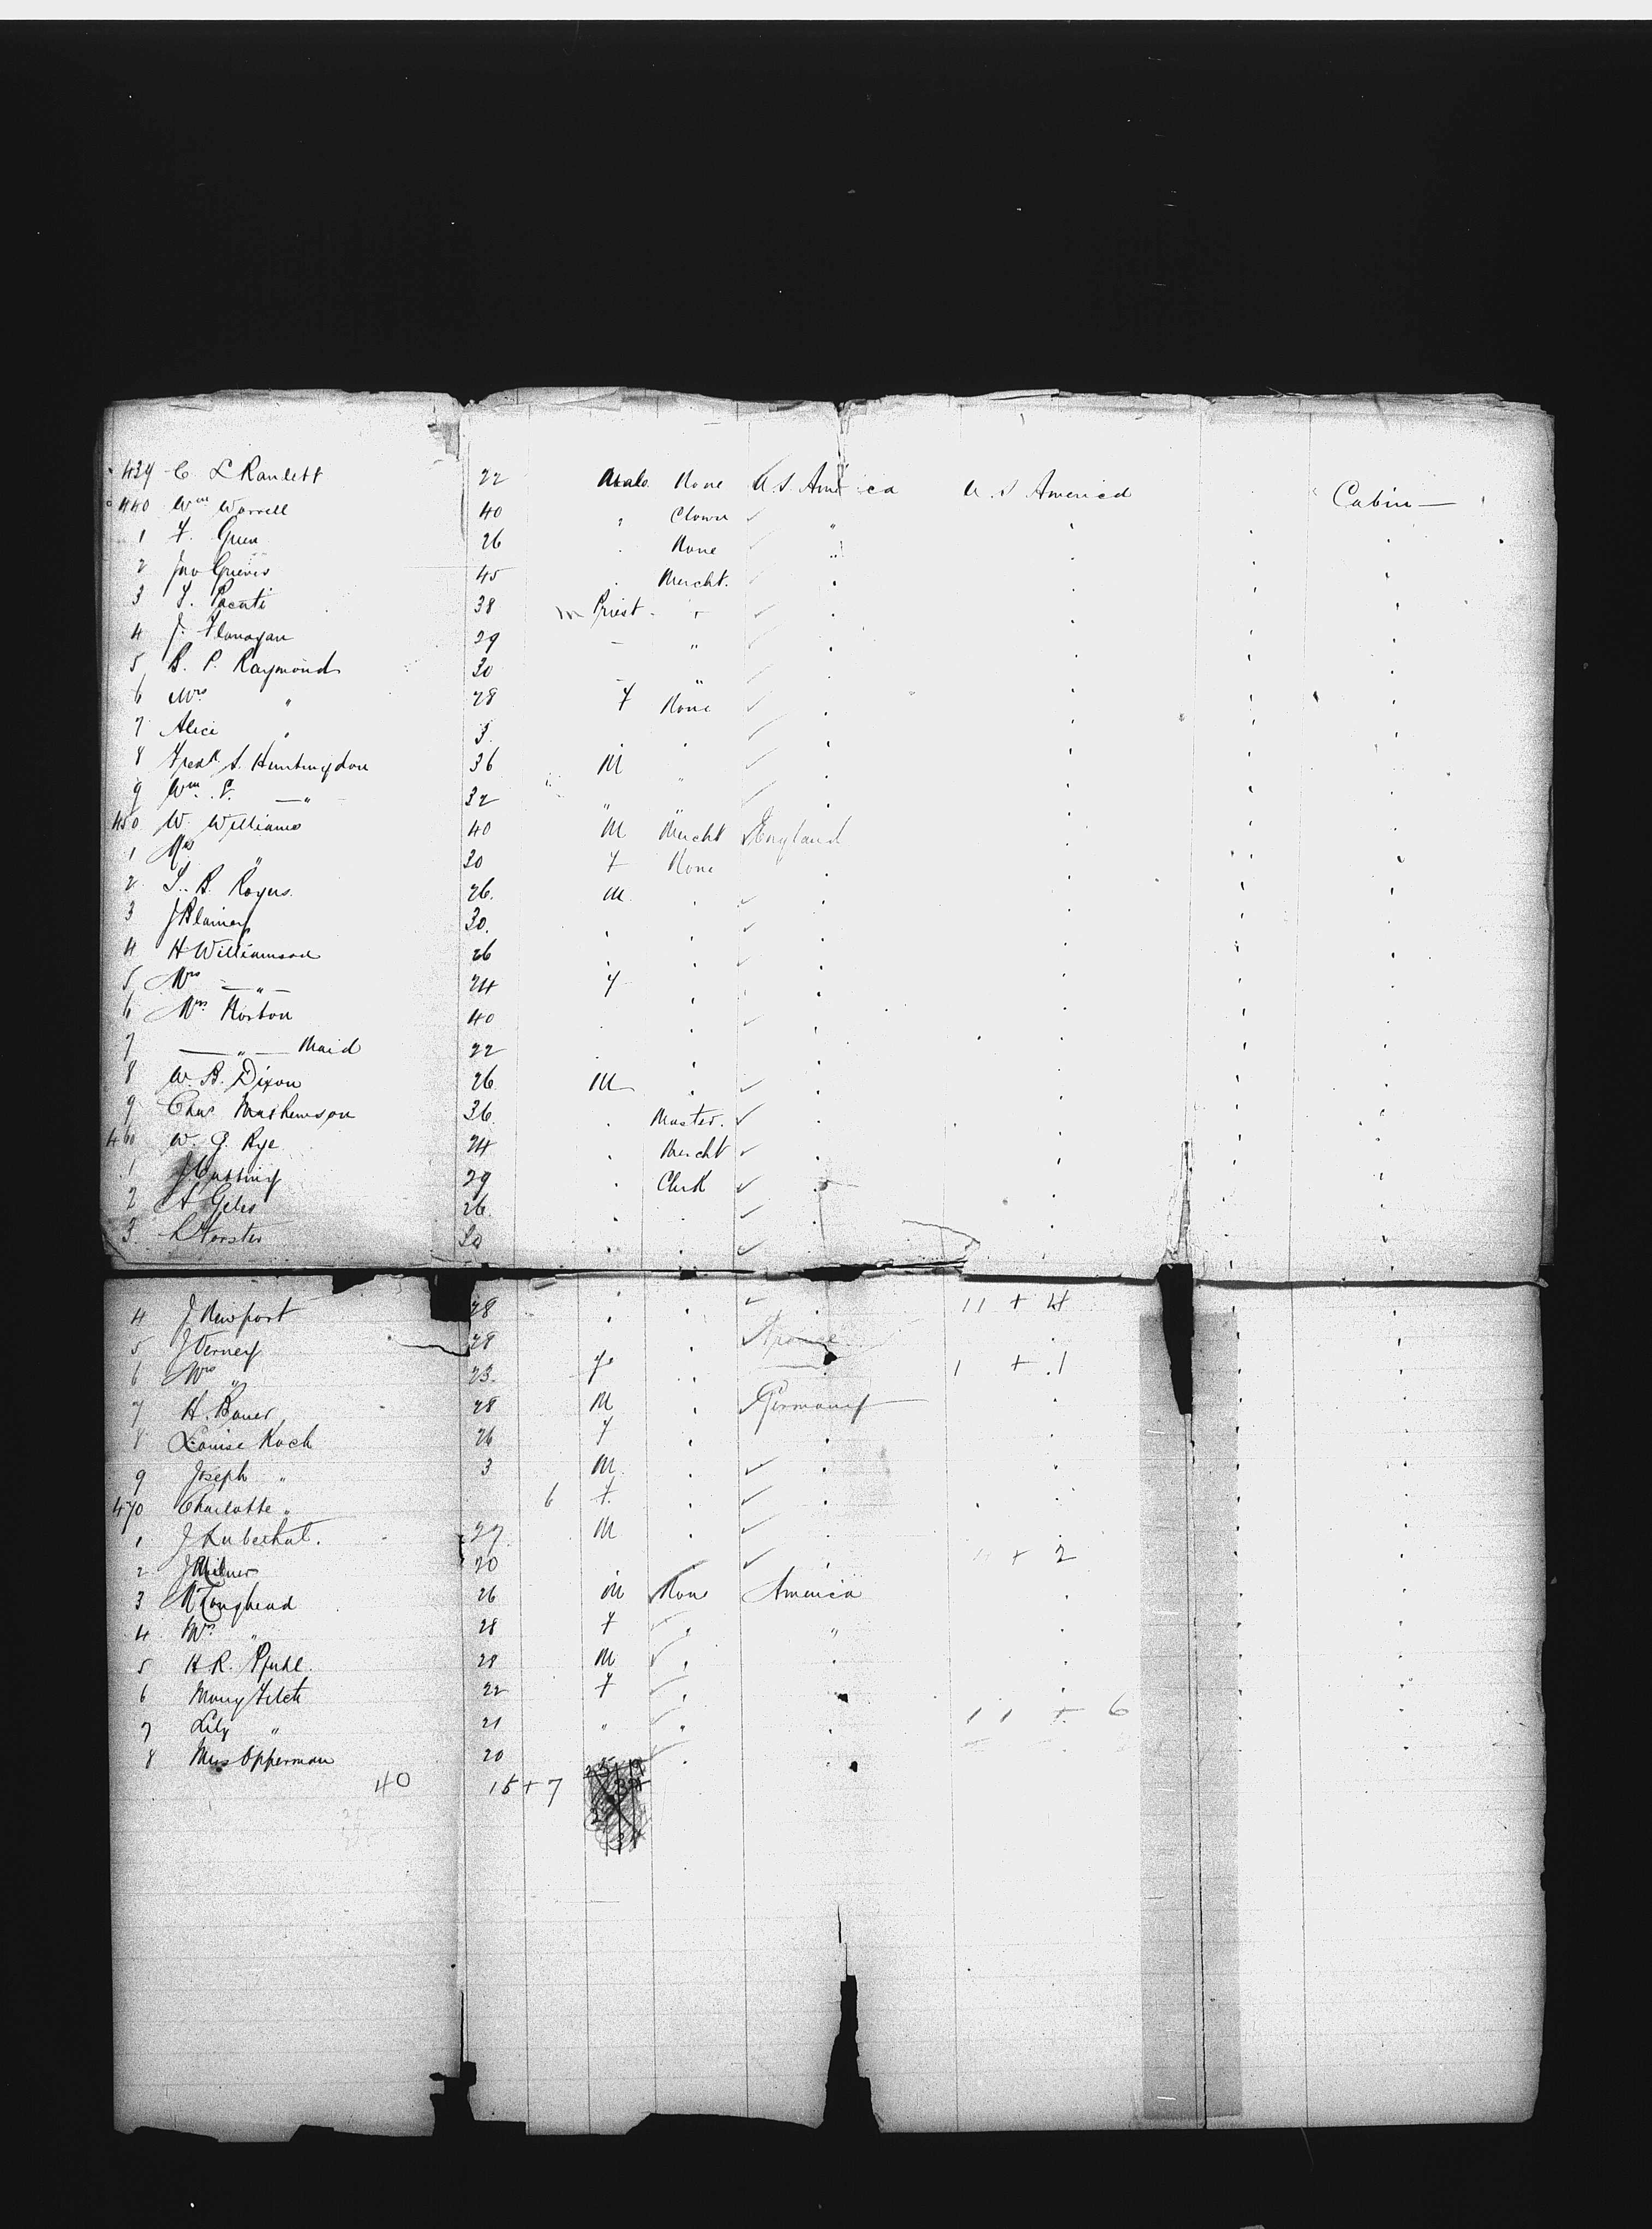 439 C. L Ranlett 22 Male None U.S. America U.S. America Cabin —
440 Wm Worrell 40 " Clown ✓ "
1 F. Green 26 . None ✓ "
2 Jno Grieves 45 . Mercht. ✓
3 38 m Priest - " ✓
4 J. Flanagan 29 — " ✓
5 B. P. Raymond 30 — " ✓
6 Mrs " 28 F None ✓
7 Alice " 3 . . ✓
8 Fredk S. Huntingdon 36 M " ✓
9 Wm. —"— 32 " " ✓
450 W. Williams 40 M Mercht England
1 Mrs " 30 F None
2 S. B. Rogers. 26. M . ✓
3 30. . . ✓
4 H Williamson 26 . . ✓
5 Mrs —"— 24 F .
6 Mrs Norton 40 . . ✓
7 —"— Maid 22 . .
8 W. B. Dixon 26 M . ✓
9 Chas Mathewson 36. . Master. ✓
460 W. G. Rye 24 . Mercht ✓
1 J Cutting 29 . Clerk ✓
2 A Giles 26. . . ✓
3 Forster 30 . . ✓
4 J Newport 28 . . ✓ 11 + 4
5 J Verney 28 .
6 Mrs " 23. F . 1 + 1
7 H. Bauer 28 M . Germany
8 Louise Koch 26 F .
9 Joseph " 3 M . ✓
470 Charlotte " 6 F. . ✓
1 27 M ✓
2 J Milner 20 ✓ + 2
3 26 M None America
4 Mrs " 28 F ✓ "
5 H. R. Pfuhl. 28 M ✓
6 Mary 22 F ✓
7 Lily " 21 " " 11 + 6
8 Miss Opperman 20
40 15 + 7